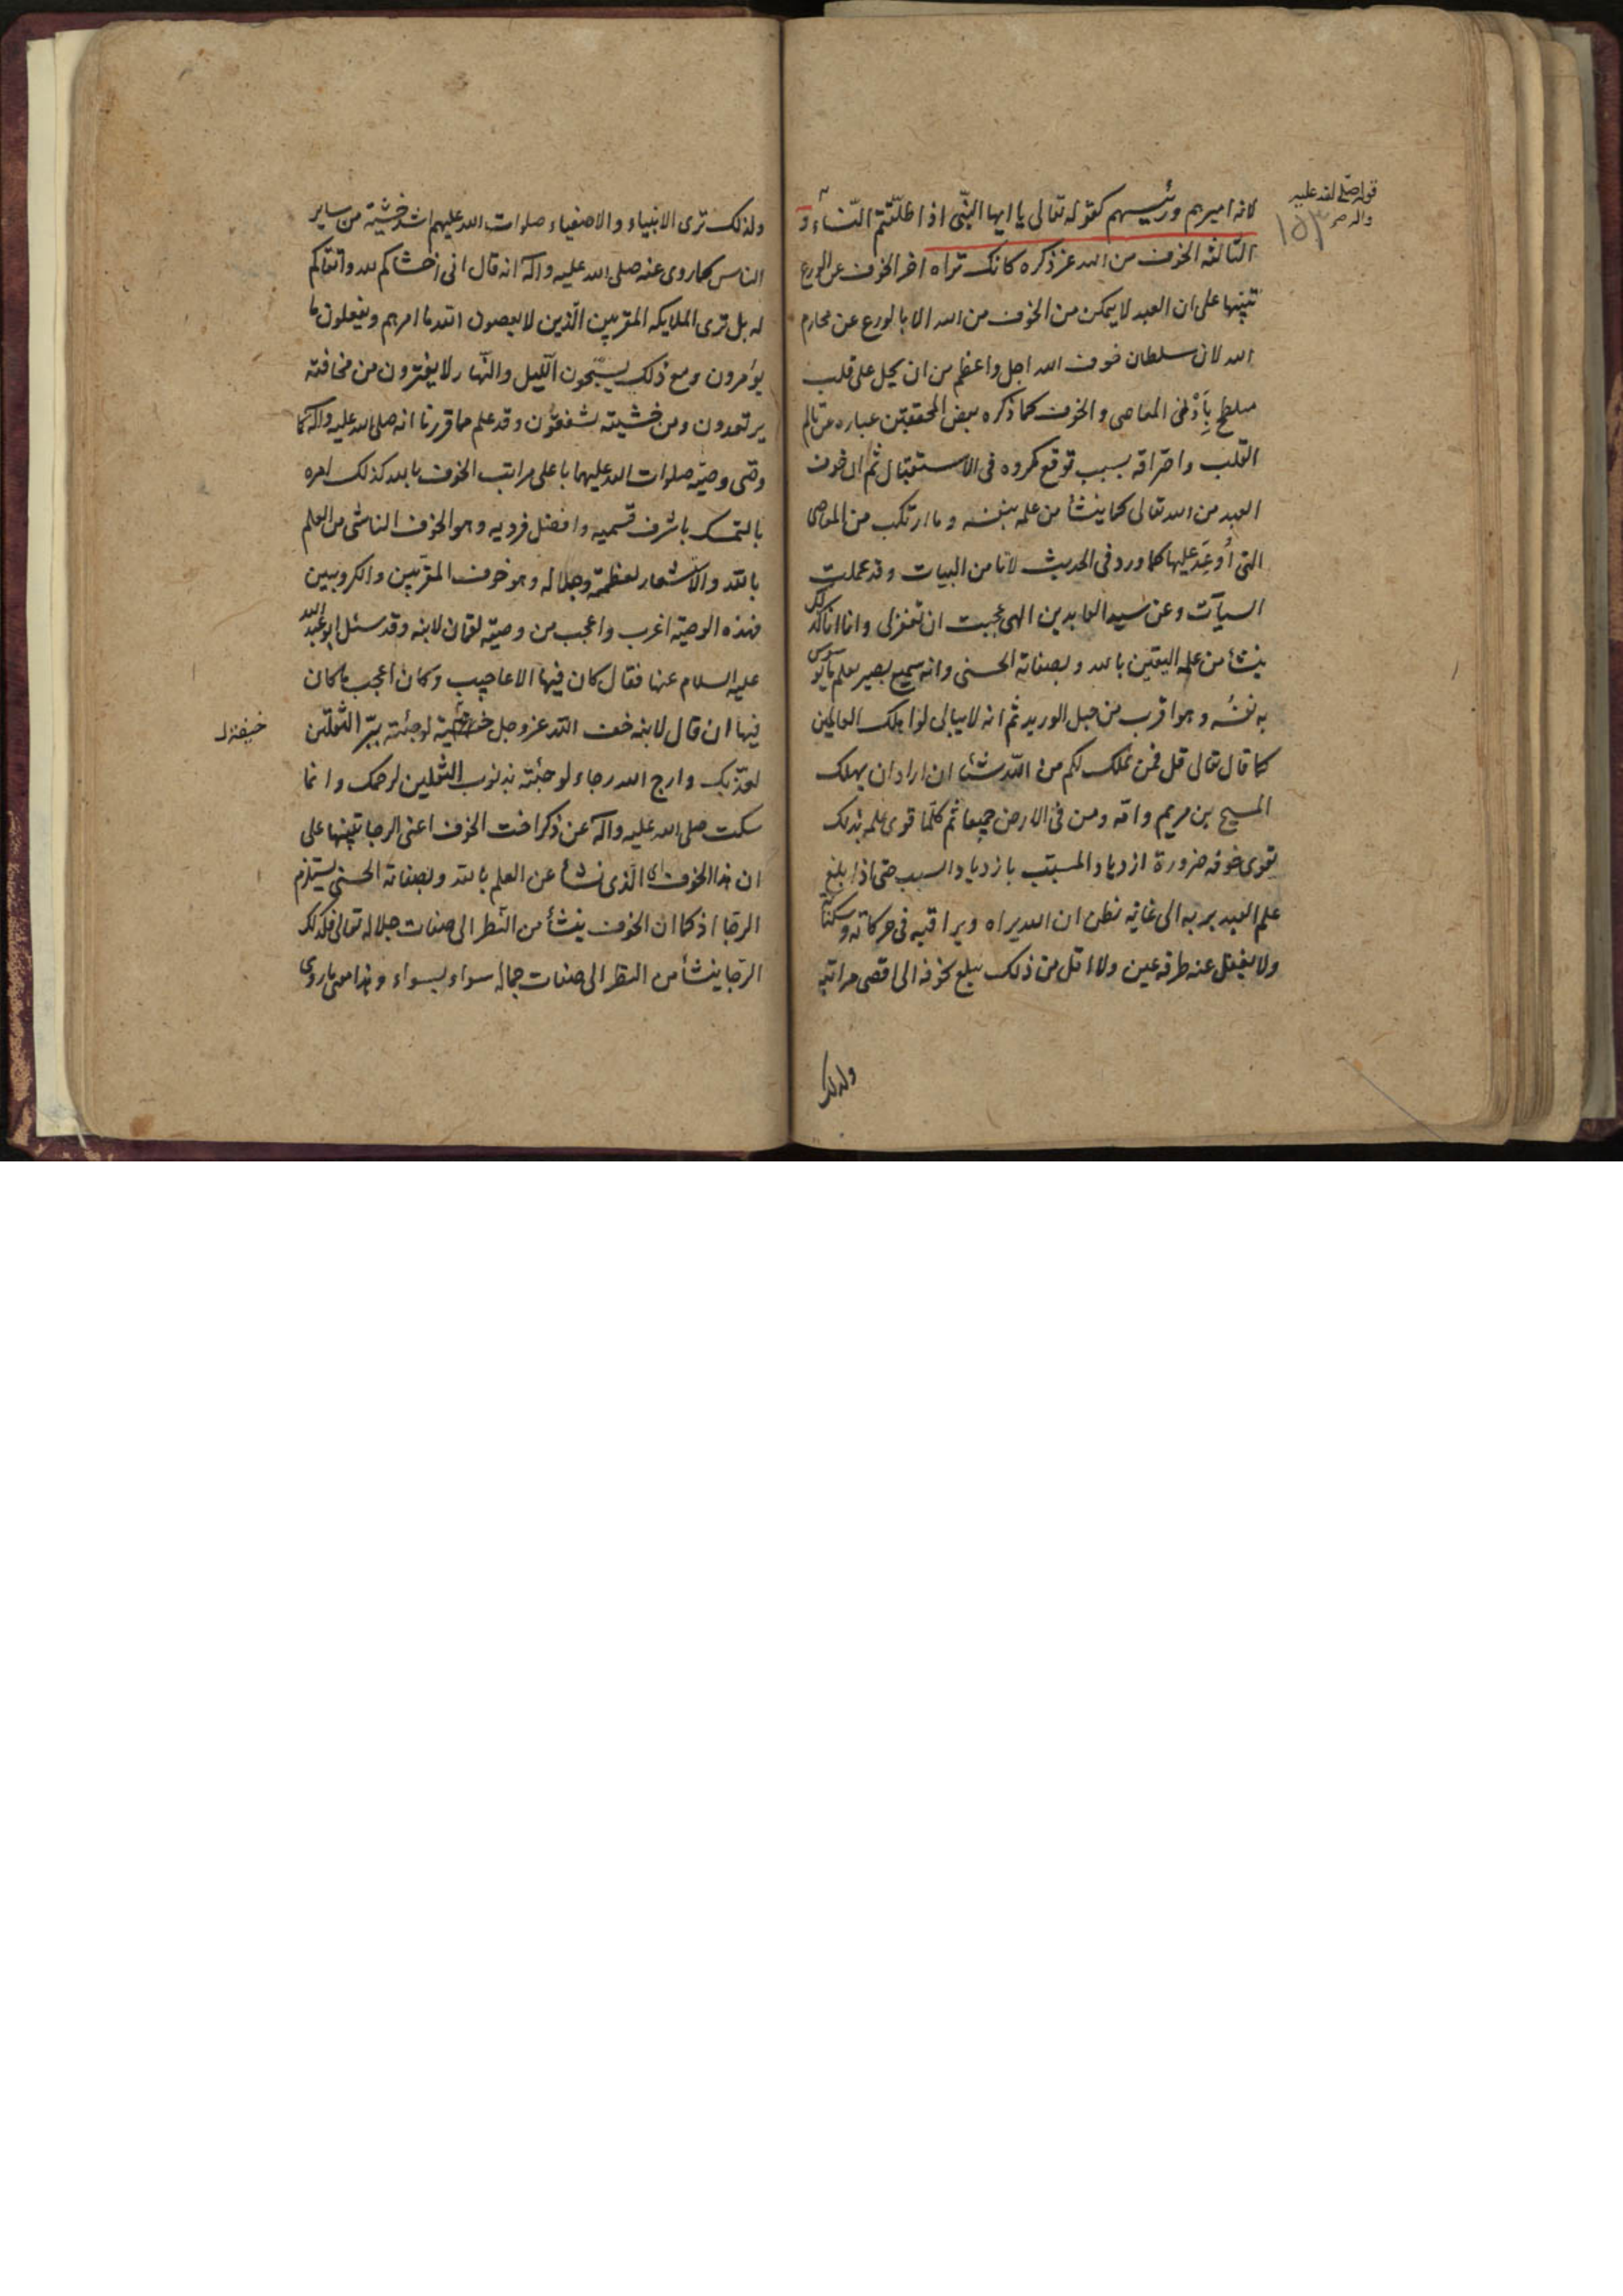 لانه اميرهم ورئيسهم كقوله تعالى يا ايها النبّى اذا طلّقتم النّساء و
الثّالثه الخوف من الله عز ذكره كانك تراه اخر الخوف عن الورع
تنبيها على ان العبد لا يتمكن من الخوف من الله الا بالورع عن محارم
الله لان سلطان خوف الله اجل واعظم من ان يحل على قلب
ملطخ بأدنى المعاصى والخوف كما ذكره بعض المحققين عباره عن تالم
القلب واحتراقه بسبب توقع مكروه فى الاستقبال ثم ان خوف
العبد من الله تعالى كما ينشأ من علمه بنفسه وما ارتكب من المعاصى
التى أُوعِدَ عليها كما ورد فى الحديث لانا من البيات وقد عملت
السيآت وعن سيد العابدين الهى عجبت ان تغفر لى وانا انا كذلك
ينشأ من علم اليقين بالله وبصفاته الحسنى وانه سميع بصير يعلم ما توسوس
به نفسُه وهو اقرب من حبل الوريد ثم انه لا يبالى لو اهلك العالمين
كما قال تعالى قل فمن يملك لكم من اللّه شيئا ان اراد ان يهلك
المسيح بن مريم وامّه ومن فى الارض جميعا ثم كلّما قوى علمه بذلك
يقوى خوفه ضرورة ازدياد المسبّب بازدياد السبب حتى اذا بلغ
علم العبد بربه الى غايه يظن ان الله يراه ويراقبه فى حركاته وسكناته
ولا يغفل عنه طرفه عين ولا اقل من ذلك يبلغ خوفه الى اقصى مراتبه
قوله صلى الله عليه
واله
١٥٣
ولذلك
ولذلك ترى الانبياء والاصفياء صلوات الله عليهم اشد خشية من ساير
الناس كما روى عنه صلى الله عليه واله انه قال انى اخشاكم لله واتقاكم
له بل ترى الملايكه المقربين الّذين لا يعصون الله ما امرهم ويفعلون ما
يؤمرون ومع ذلك يسبّحون اللّيل والنّهار لا يفترون من مخافته
يرتعدون ومن خشيته مشفقون وقد علم مما قررنا انه صلى الله عليه واله كما
وصّى وصيّه صلوات الله عليهما باعلى مراتب الخوف بالله كذلك امره
بالتمسك باشرف قسميه وافضل فرديه وهو الخوف الناشى من العلم
بالله والاشعار بعظمته وجلاله وهو خوف المقرّبين والكروبين
فهذه الوصيّة اغرب واعجب من وصيّة لقمان لابنه وقد سئل ابو عبد الله
عليه السلام عنها فقال كان فيها الاعاجيب وكان اعجب ما كان
فيها ان قال لابنه خف الله عز وجل خشية لو جئته ببرّ الثّقلين
لعذّبك وارج الله رجاء لو جئته بذنوب الثقلين لرحمك وانما
سكت صلى الله عليه واله عن ذكر اخت الخوف اعنى الرجا تنبيها على
ان هذا الخوف اى الّذى نشأ عن العلم بالله وبصفاته الحسنى يستلزم
الرجّا اذ كما ان الخوف ينشأ من النّظر الى صفات جلاله تعالى فكذلك
الرجّا ينشأ من النظر الى صفات جماله سواء بسواء وهذا معنى ما روى
خيفة ل